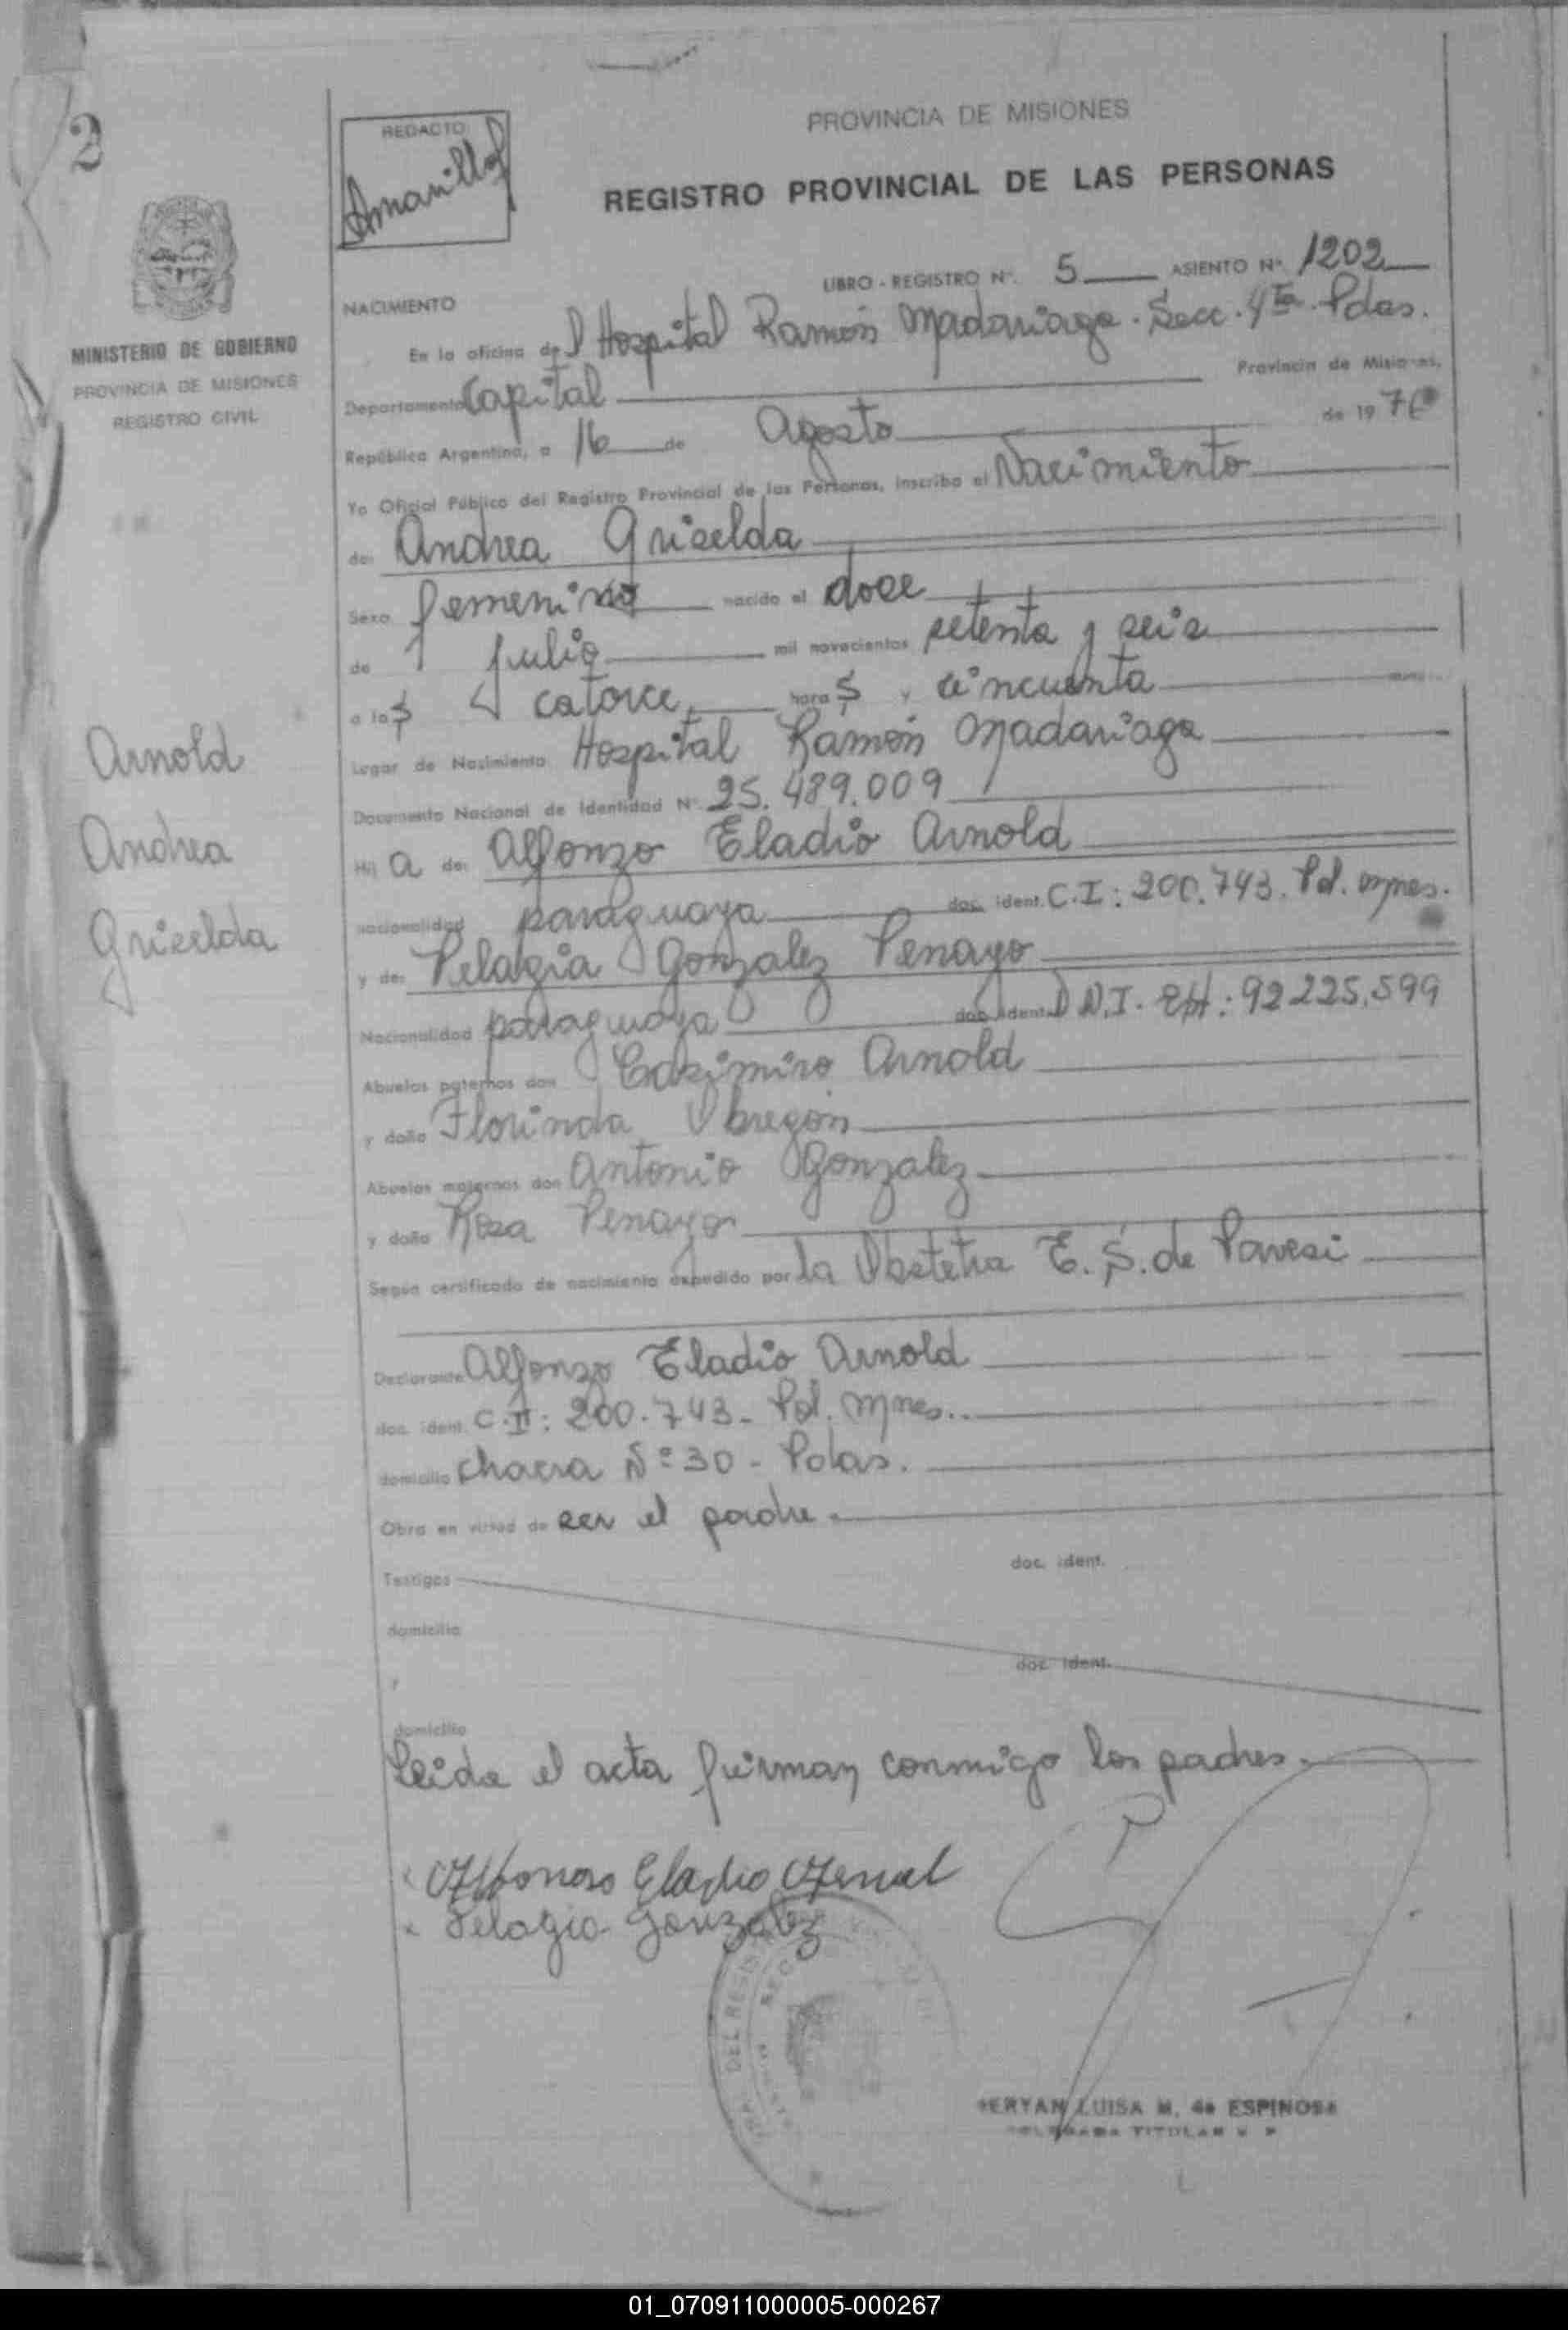 2
REDACTO
Amarilla
PROVINCIA DE MISIONES
REGISTRO PROVINCIAL DE LAS PERSONAS
LIBRO - REGISTRO Nº. 5 ASIENTO Nº 1202
MINISTERIO DE GOBIERNO
PROVINCIA DE MISIONES
REGISTRO CIVIL
NACIMIENTO
En la oficina del Hospital Ramón Madariaga. Secc. 4ta. Pdas.
Departamento Capital Provincia de Misiones,
República Argentina, a 16 de Agosto de 1976
Yo Oficial Público del Registro Provincial de las Personas, inscribo el Nacimiento
de: Andrea Griselda
Sexo femenino nacido el doce
de julio mil novecientos setenta y seis
a las catorce hora s y cincuenta
Lugar de Nacimiento Hospital Ramón Madariaga
Documento Nacional de Identidad Nº 25.489.009
Hij a de: Alfonzo Eladio Arnold
nacionalidad paraguaya doc. ident. C.I: 200.743. Pol. Mnes.
y de: Pelagia Gonzalez Penayo
Nacionalidad paraguaya doc. ident. D.N.I. Ext: 92225.599
Abuelos paternos don Casimiro Arnold
y doña Florinda Obregón
Abuelos maternos don Antonio Gonzalez
y doña Rosa Penayo
Según certificado de nacimiento expedido por la Obstetra E. S. de Pavesi
Declarante Alfonzo Eladio Arnold
doc. ident. C.I: 200.743- Pol. Mnes..
domicilio chacra Nº 30 - Pdas.
Obra en virtud de ser el padre.
doc. ident.
Testigos
domicilio
doc. ident.
y
domicilio
Leida el acta firman conmigo los padres.
Arnold
Andrea
Griselda
Alfonso Eladio
Pelagia Gonzalez
DEL REGIS
LUISA M. de ESPINOSA
TITULAR
01_070911000005-000267